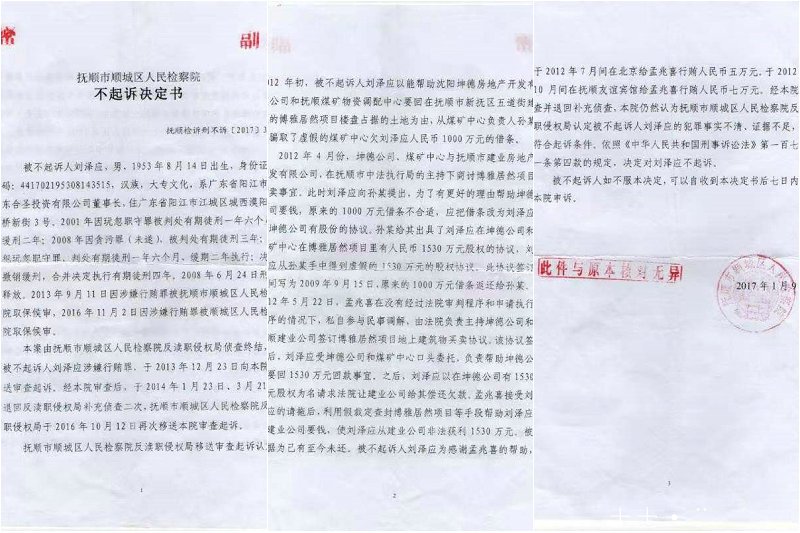 副
抚顺市顺城区人民检察院
不起诉决定书
抚顺检诉刑不诉〔2017〕3
被不起诉人刘泽应，男，1953年8月14日出生，身份证
码：441702195308143515，汉族，大专文化，系广东省阳江市
东合圣投资有限公司董事长，住广东省阳江市江城区城西漠阳
桥新街3号。2001年因玩忽职守罪被判处有期徒刑一年六个
缓刑二年；2008年因贪污罪（未遂），被判处有期徒刑三年；
现玩忽职守罪，判处有期徒刑一年六个月，缓期二年执行；决
撤销缓刑，合并决定执行有期徒刑四年。2008年6月24日刑
释放。2013年9月11日因涉嫌行贿罪被抚顺市顺城区人民检
院取保候审。2016年11月2日因涉嫌行贿罪被顺城区人民检
院取保候审。
本案由抚顺市顺城区人民检察院反渎职侵权局侦查终结，
被不起诉人刘泽应涉嫌行贿罪。于2013年12月23日向本院
送审查起诉。经本院审查后，于2014年1月23日、3月21
退回反渎职侵权局补充侦查二次，抚顺市顺城区人民检察院反
职侵权局于2016年10月12日再次移送本院审查起诉。
抚顺市顺城区人民检察院反渎职侵权局移送审查起诉认
1
012年初，被不起诉人刘泽应以能帮助沈阳坤德房地产开发有
公司和抚顺煤矿物资调配中心要回在抚顺市新抚区五道街建
的博雅居然项目楼盘占据的土地为由，从煤矿中心负责人孙某
骗取了虚假的煤矿中心欠刘泽应人民币1000万元的借条。
2012年4月份，坤德公司、煤矿中心与抚顺市建业房地产
发有限公司，在抚顺市中法执行局的主持下商讨博雅居然项目
卖事宜。此时刘泽应向孙某提出，为了有更好的理由帮助坤德
司要钱，原来的1000万元借条不合适，应把借条改为刘泽应
坤德公司有股份的协议。孙某给其出具了刘泽应在坤德公司和
矿中心在博雅居然项目里有人民币1530万元股权的协议，刘
应从孙某手中得到虚假的1530万元的股权协议。此协议签订
间写为2009年9月15日，原来的1000万借条返还给孙某。
12年5月22日，孟兆喜在没有经过法院审判程序和申请执行
序的情况下，私自参与民事调解，由法院负责主持坤德公司和
顺建业公司签订博雅居然项目地上建筑物买卖协议。该协议签
后，刘泽应受坤德公司和煤矿中心口头委托，负责帮助坤德公
要回1530万元回款事宜。之后，刘泽应以在坤德公司有1530
元股权为名请求法院让建业公司给其偿还欠款。孟兆喜接受刘
应的请施后，利用假裁定查封博雅居然项目等手段帮助刘泽应
建业公司要钱，使刘泽应从建业公司非法获利1530万元，被
据为己有至今未还。被不起诉人刘泽应为感谢孟兆喜的帮助，
2
于2012年7月间在北京给孟兆喜行贿人民币五万元，于2012
10月间在抚顺友谊宾馆给孟兆喜行贿人民币七万元。经本院
查并退回补充侦查，本院仍然认为抚顺市顺城区人民检察院反
职侵权局认定被不起诉人刘泽应的犯罪事实不清，证据不足，
符合起诉条件。依照《中华人民共和国刑事诉讼法》第一百七
一条第四款的规定，决定对刘泽应不起诉。
被不起诉人如不服本决定，可以自收到本决定书后七日内
本院申诉。
此件与原本核对无异
2017年1月9
3